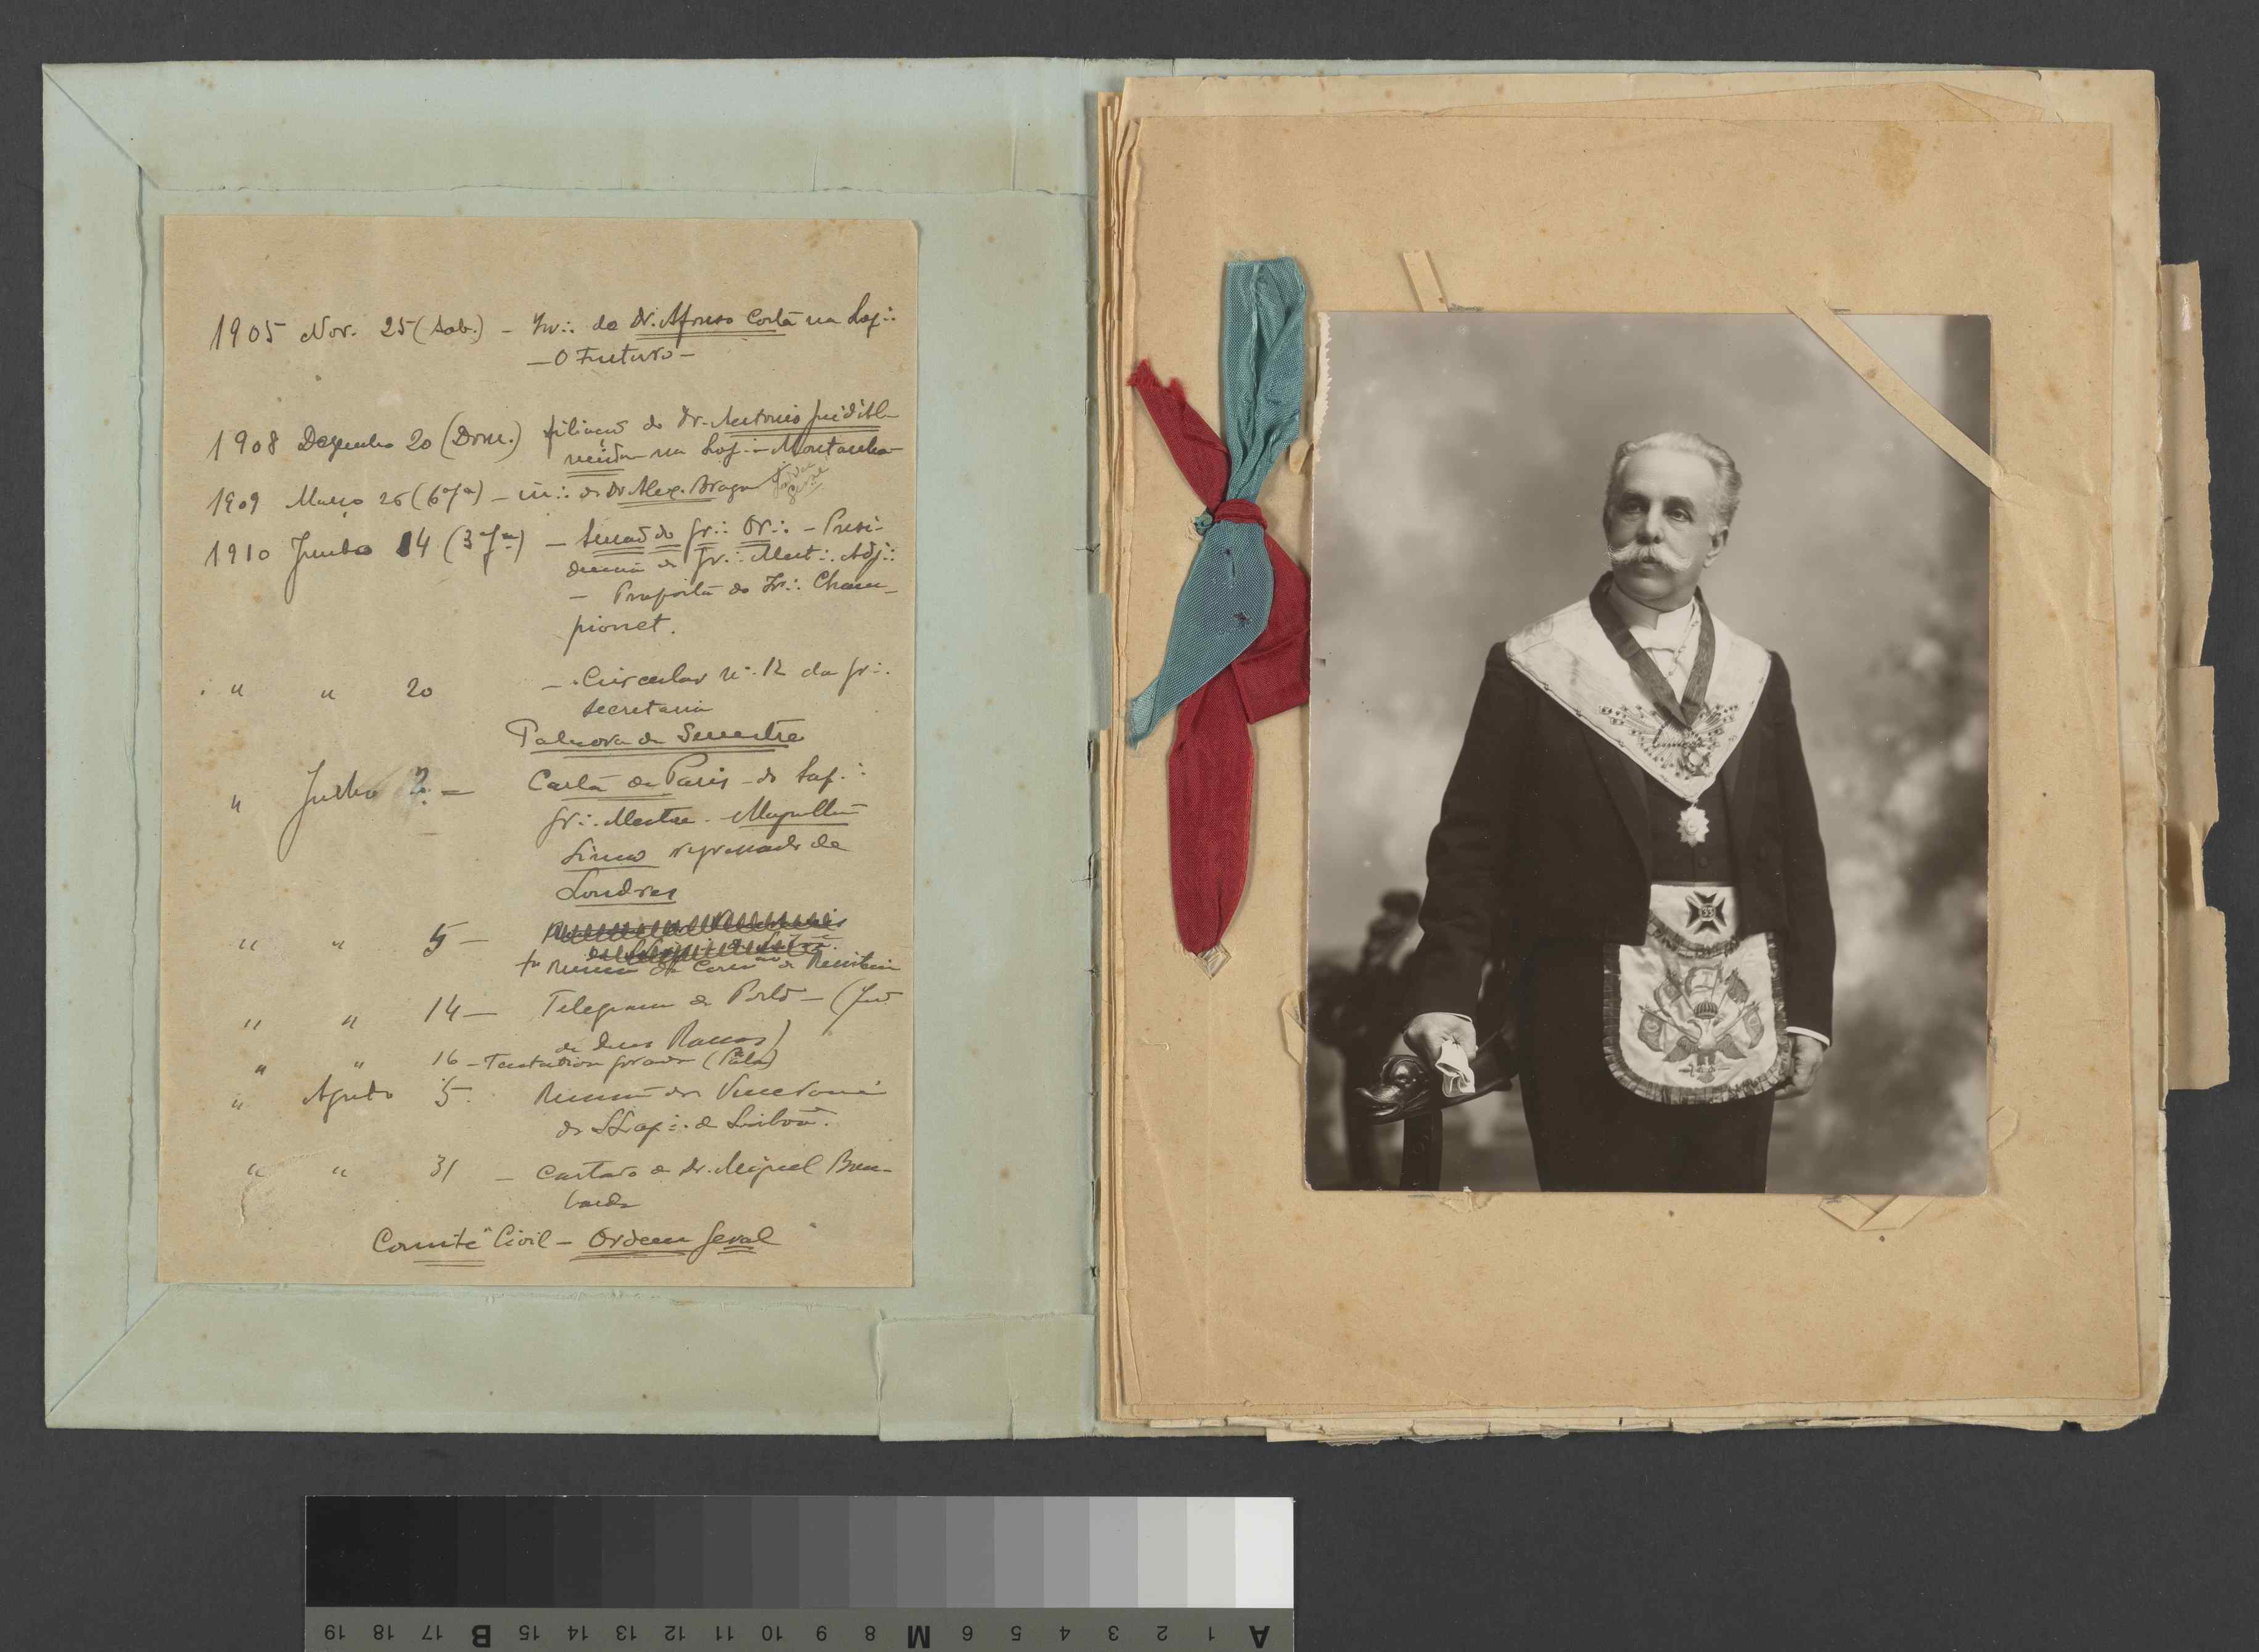 1905 Nov. 25 (Sab.) – In∴ do Dr. Afonso Costa na Loj∴
– O Futuro –
1908 Dezembro 20 (Dom.) filiação do Dr. Antonio José d'Al-
meida na Loj∴ – Montanha –
1909 Março 26 (6ª fª) – in∴ do Dr Alex. Braga
1910 Junho 14 (3ª fª) – Senado do Gr∴ Or∴ – Presi-
dencia do Gr∴ Mest∴ Adj∴
– Proposta do Ir∴ Cham-
pionet.
" " 20 – Circular nº 12 da Gr∴
Secretaria
Palavra de Semestre
" Julho 2 – Carta de Paris – do Sap∴
Gr∴ Mestre – Magalhães
Lima regressado de
Londres
" " 5 –
1ª Reunião da Comᵃᵒ de Resistencia
" " 14 – Telegrama do Porto – (José
de Ramos)
" " 16 – (Pala)
" Agosto 5. Reunião dos Veneraveis
das LLoj∴ de Lisboa.
" " 31 – Cartão do Dr. Miguel Bom-
barda
Comité Civil – Ordem Geral
33
A 1 2 3 4 5 6 M 8 9 10 11 12 13 14 15 B 17 18 19